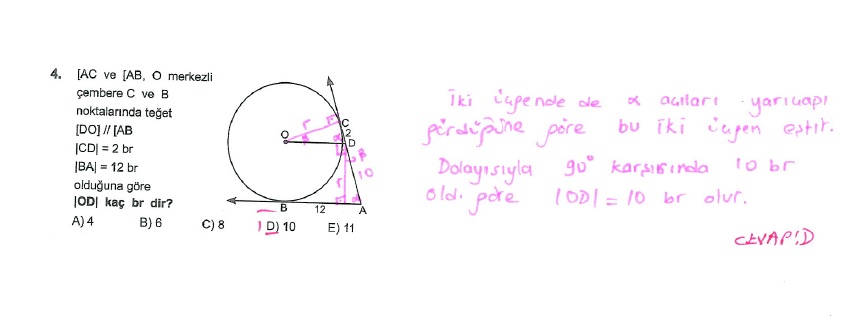 4. [AC ve [AB, O merkezli
çembere C ve B
noktalarında teğet
[DO] // [AB
|CD| = 2 br
|BA| = 12 br
olduğuna göre
|OD| kaç br dir?
A) 4 B) 6 C) 8 D) 10 E) 11
O
r
C
2
D
α
10
r
α
B
12
A
İki üçgende de α açıları yarıçapı
gördüğüne göre bu iki üçgen eştir.
Dolayısıyla 90° karşısında 10 br
oldı göre |OD| = 10 br olur.
CEVAP:D